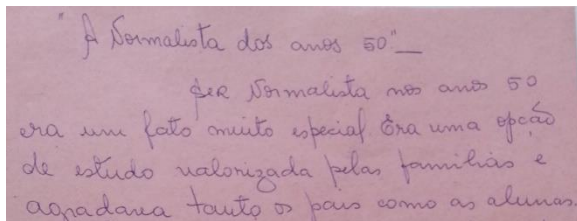 "A Normalista dos anos 50"_
Ser Normalista nos anos 50
era um fato muito especial Era uma opção
de estudo valorizada pelas famílias e
agradava tanto os pais como as alunas.